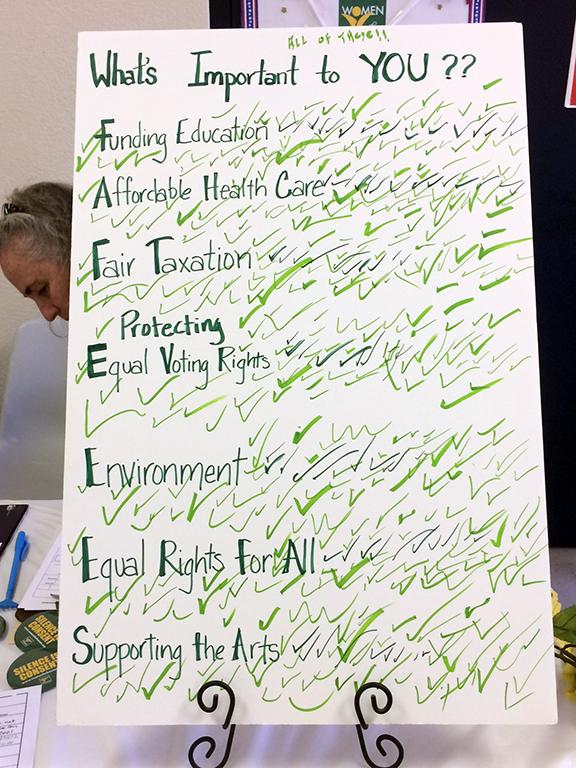 WOMEN
ALL OF THESE!!
What's Important to YOU ??
Funding Education
Affordable Health Care
Fair Taxation
Protecting
Equal Voting Rights
Environment
Equal Rights For All
Supporting the Arts
SILENCE IS
CONSENT
SILENCE IS
CONSENT